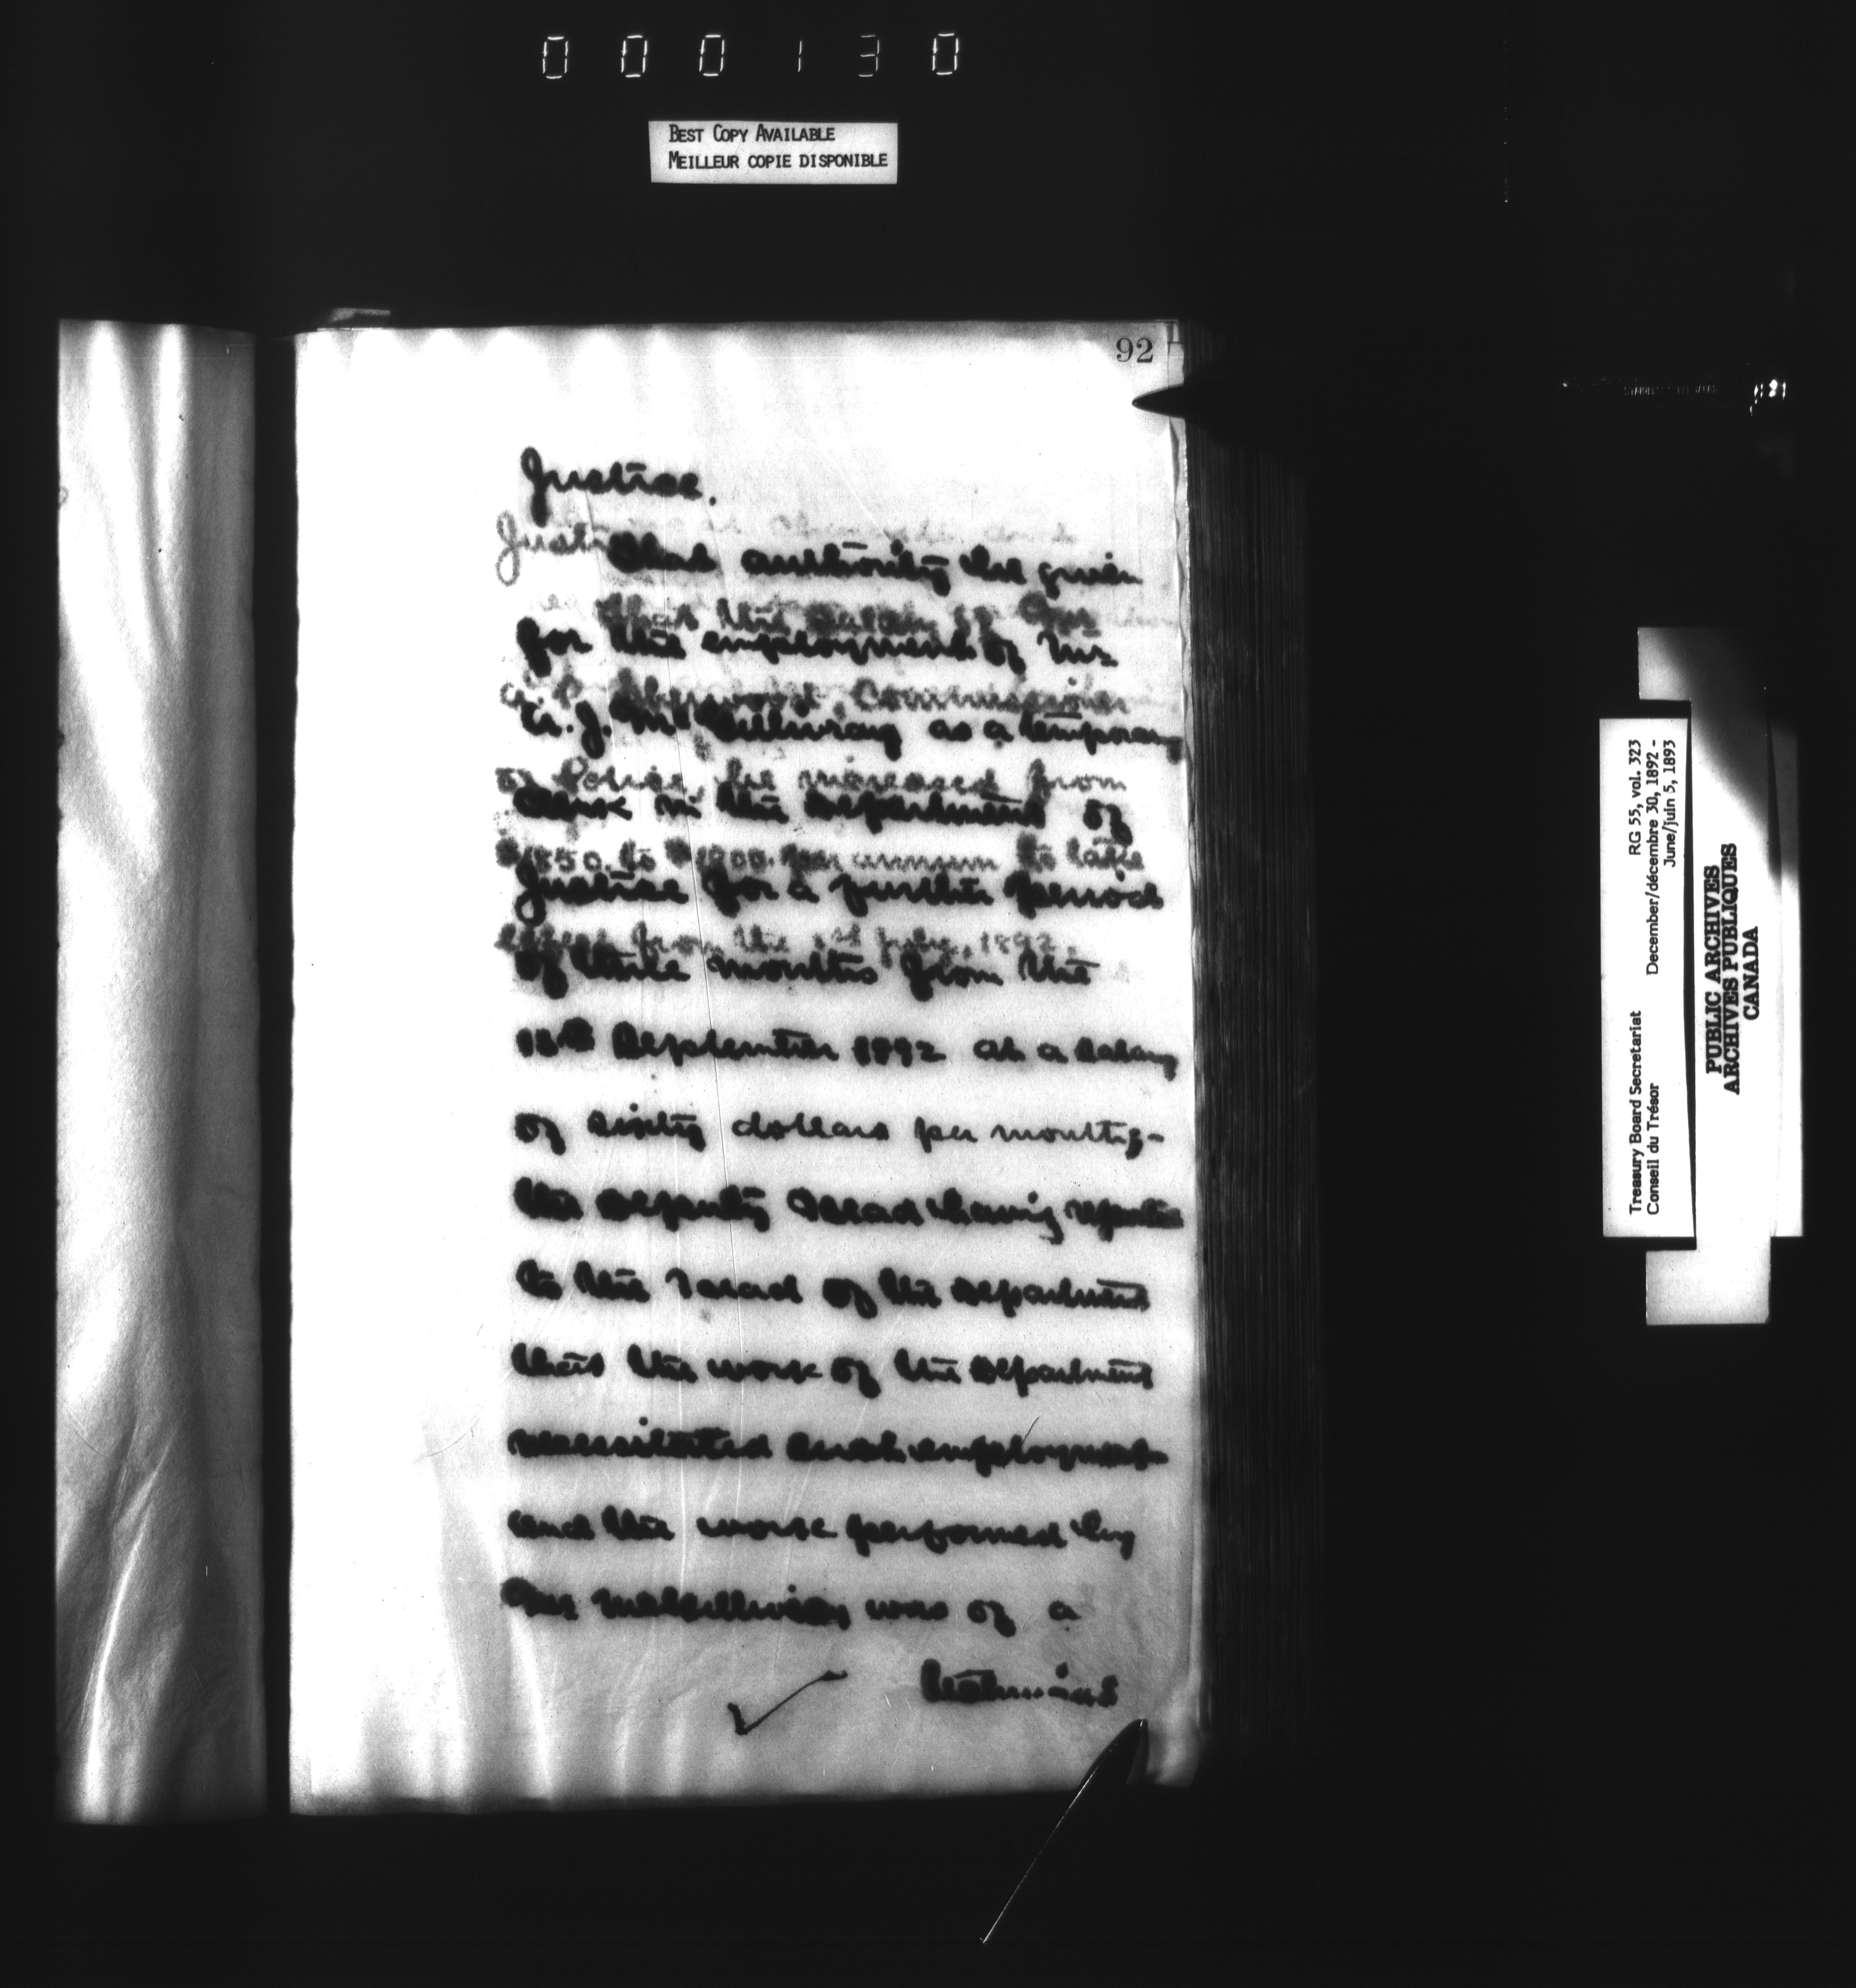 000130
BEST COPY AVAILABLE
MEILLEUR COPIE DISPONIBLE
92
Justice.
That authority be given
for the employment of Mr
J. McGillivray as a temporary
clerk in the Department of
Justice for a further period
of three months from the
September 1892 at a salary
of sixty dollars per month;-
the Deputy Head having reported
to the Head of the Department
that the work of the Department
necessitated such employment
and the work performed by
Mr McGillivray was of a
technical
Justice
That the salary of
Sherwood, Commissioner
of Police, be increased from
$1850. to per annum to take
effect from the 1st July, 1892.
Treasury Board Secretariat RG 55, vol. 323
Conseil du Trésor December/décembre 30, 1892 -
June/juin 5, 1893
PUBLIC ARCHIVES
ARCHIVES PUBLIQUES
CANADA